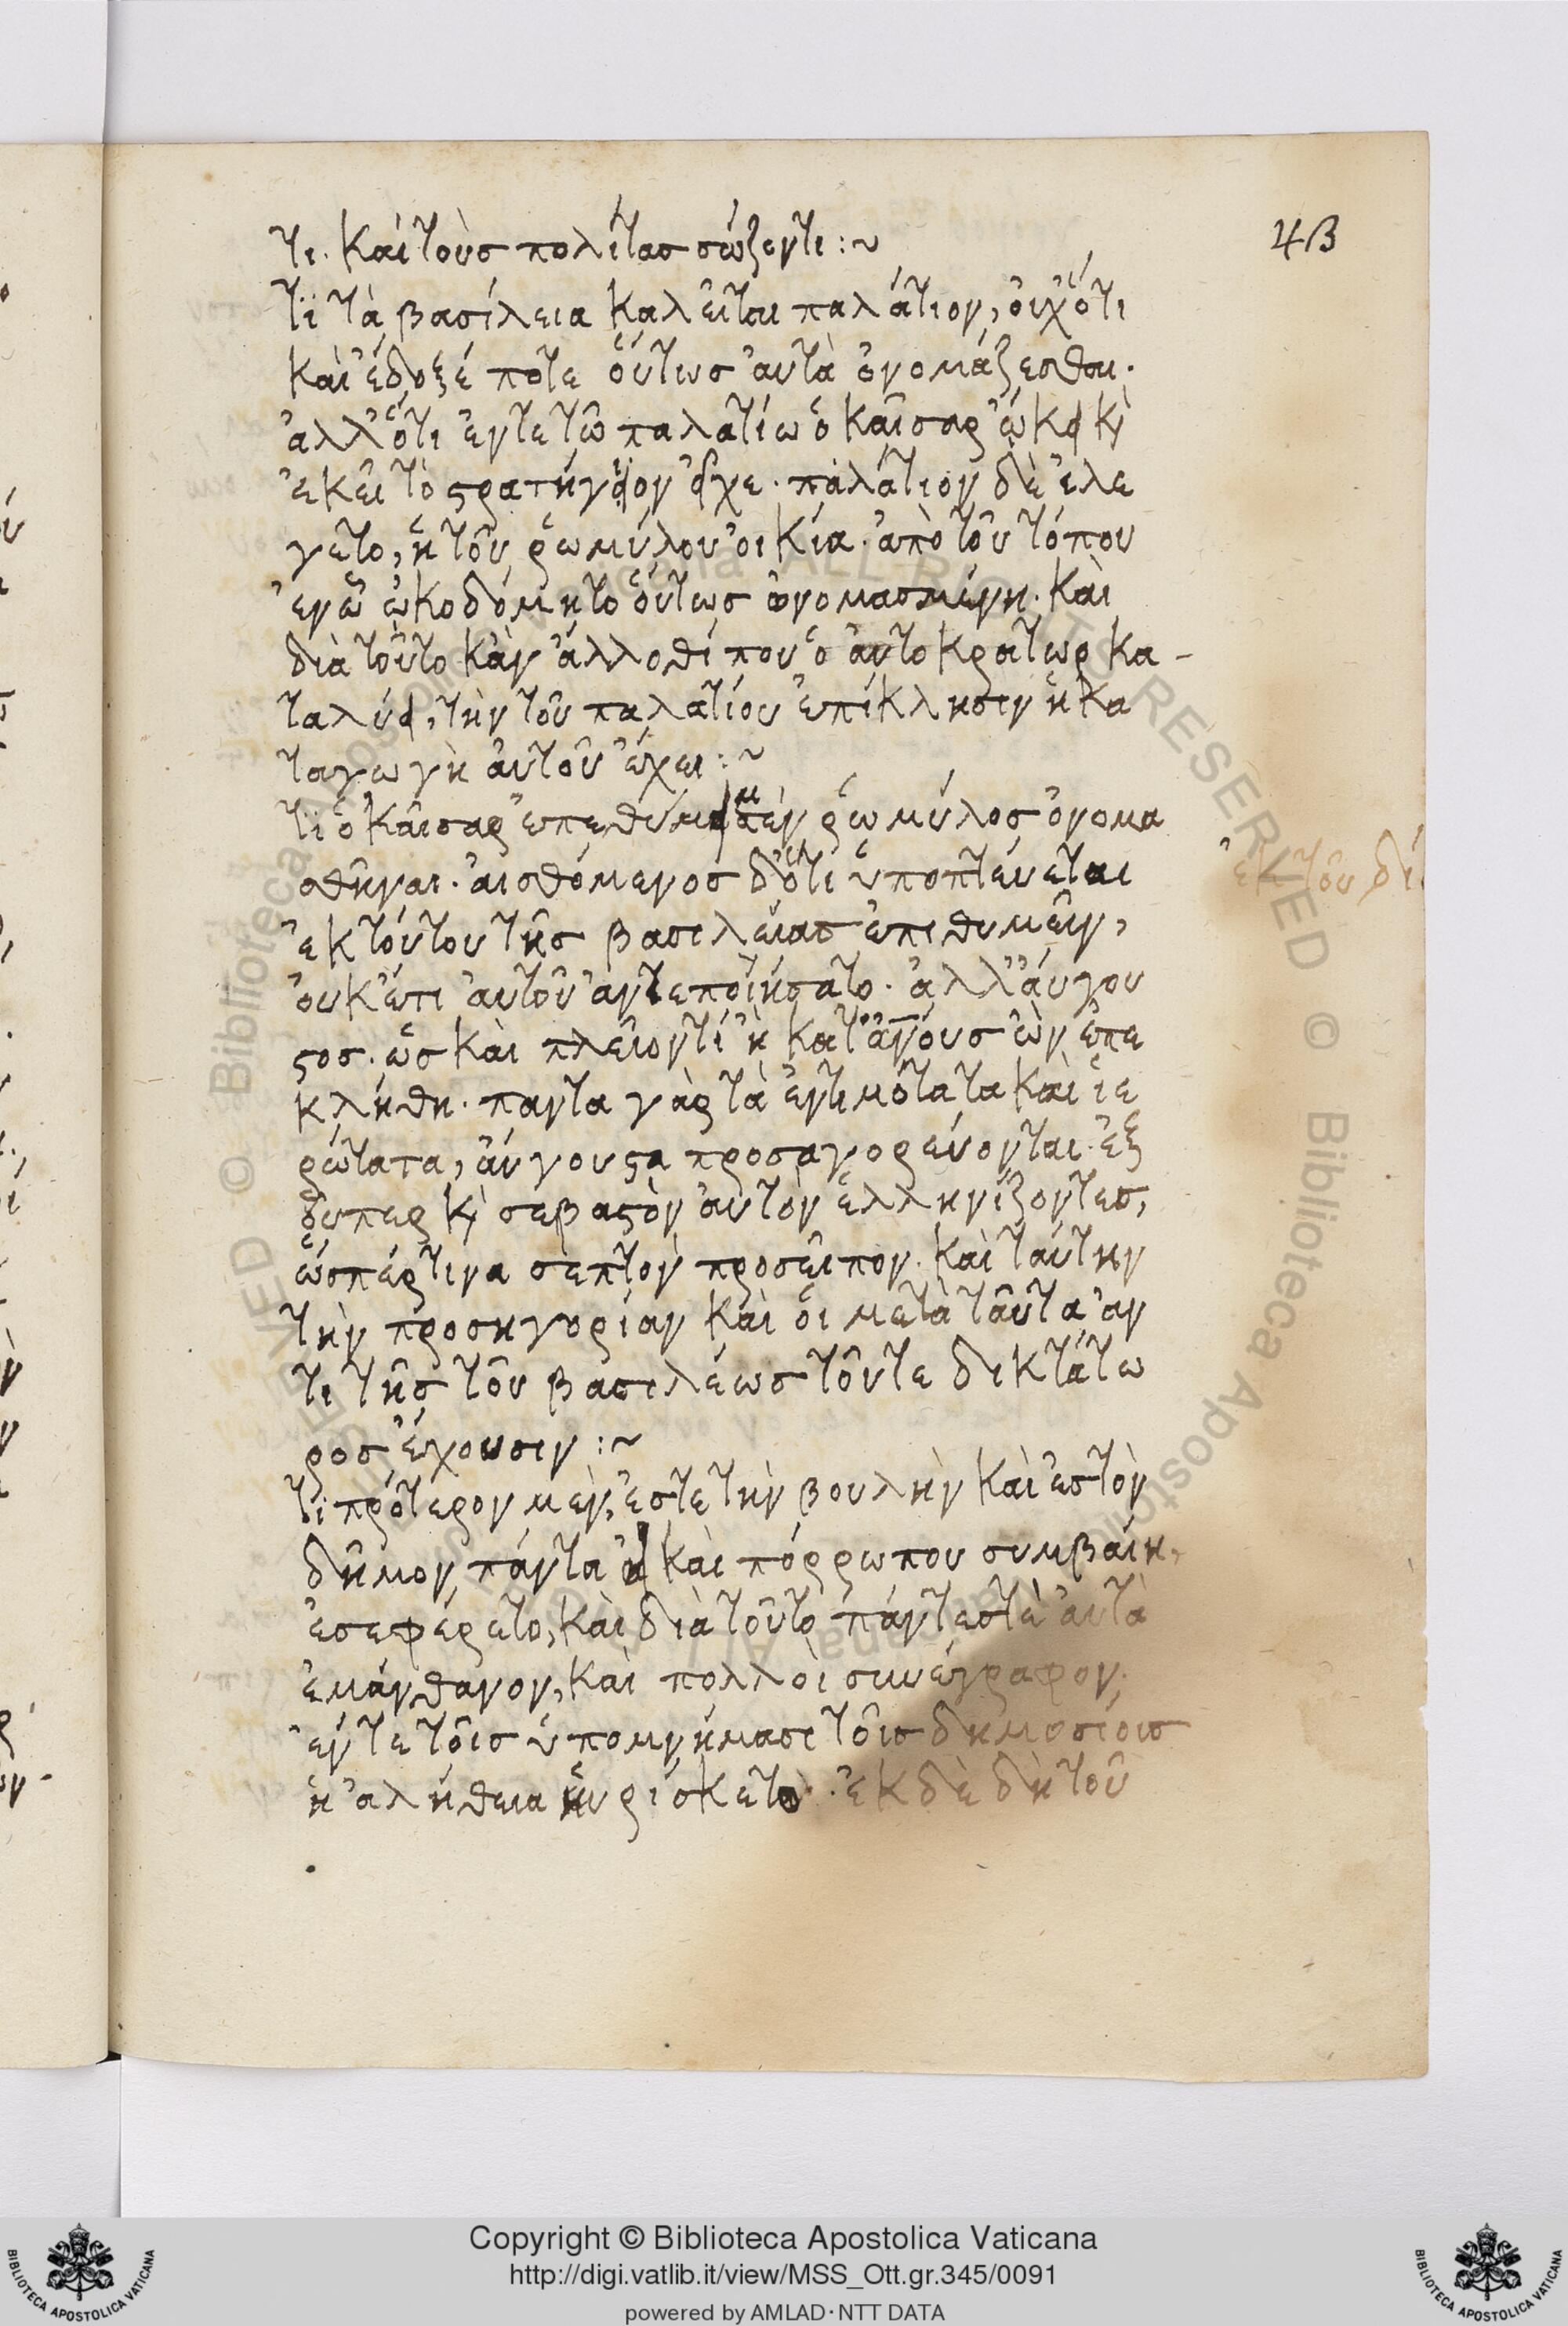 τι. καὶ τοὺσ πολίτασ σώζοντι :~
43
τὶ τὰ βασίλεια καλεῖται παλάτιον, οὐχ' ὅτι
καὶ ἔδοξέ ποτε οὕτωσ αὐτὰ ὀνομάζεσθαι.
ἀλλ' ὅτι ἐν τε τῶ παλατίω ὁ καῖσαρ ὤκει κὶ
ἐκεῖ τὸ στρατήγιον εἶχε. παλάτιον δὲ ἐλε
γετο, ἡ τοῦ ῥωμύλου οἰκία. ἀπὸ τοῦ τόπου
ἐν ὧ ὠκοδόμητο οὕτωσ ὀνομασμένη. καὶ
διὰ τοῦτο κἂν ἄλλοθί που ὁ αὐτοκράτωρ κα-
ταλύει, τὴν τοῦ παλατίου ἐπίκλησιν ἡ κα
ταγωγὴ αὐτοῦ ἔχει :~
τὶ ὁ καῖσαρ ἐπεθύμει μὲν ῥωμύλοσ ὀνομα
σθῆναι. αἰσθόμενοσ δ' ὅτι ὑποπτεύεται
ἐκ τοῦ δί
ἐκ τούτου τῆσ βασιλείασ ἐπιθυμεῖν,
οὐκέτι αὐτοῦ ἀντεποιήσατο. ἀλλ' ἄυγου
στοσ. ὡσ καὶ πλεῖον τί ἢ κατ' ἀνους ὢν ἐπε
κλήθη. παντα γὰρ τὰ ἐντιμότατα καὶ ἱε
ρώτατα, ἄυγουστα προσαγορεύονται. ἐξ
οὗπερ κὶ σεβαστὸν αὐτὸν ἑλληνίζοντεσ,
ὥσπέρ τινα σεπτὸν προσεῖπον. καὶ ταύτην
τὴν προσηγορίαν καὶ οἱ μετὰ ταῦτα ἀν
τι τῆσ τοῦ βασιλέωσ τοῦτε δικτάτω
ροσ ἔχουσιν :~
τὶ πρότερον μὲν, ἐσ τε τὴν βουλὴν καὶ ἐσ τὸν
δῆμον πάντα εἰ καὶ πόρρω που συμβαίη,
ἐσεφέρετο, καὶ διὰ τοῦτο πάντεσ τὲ αὐτὰ
ἐμάνθανον, καὶ πολλοὶ συνέγραφον.
ἐν τε τοῖσ ὑπομνήμασι τοῖσ δημοσίοισ
ἡ ἀλήθεια ηὑρίσκετο. ἐκ δὲ δὴ τοῦ
Copyright © Biblioteca Apostolica Vaticana
http://digi.vatlib.it/view/MSS_Ott.gr.345/0091
powered by AMLAD·NTT DATA